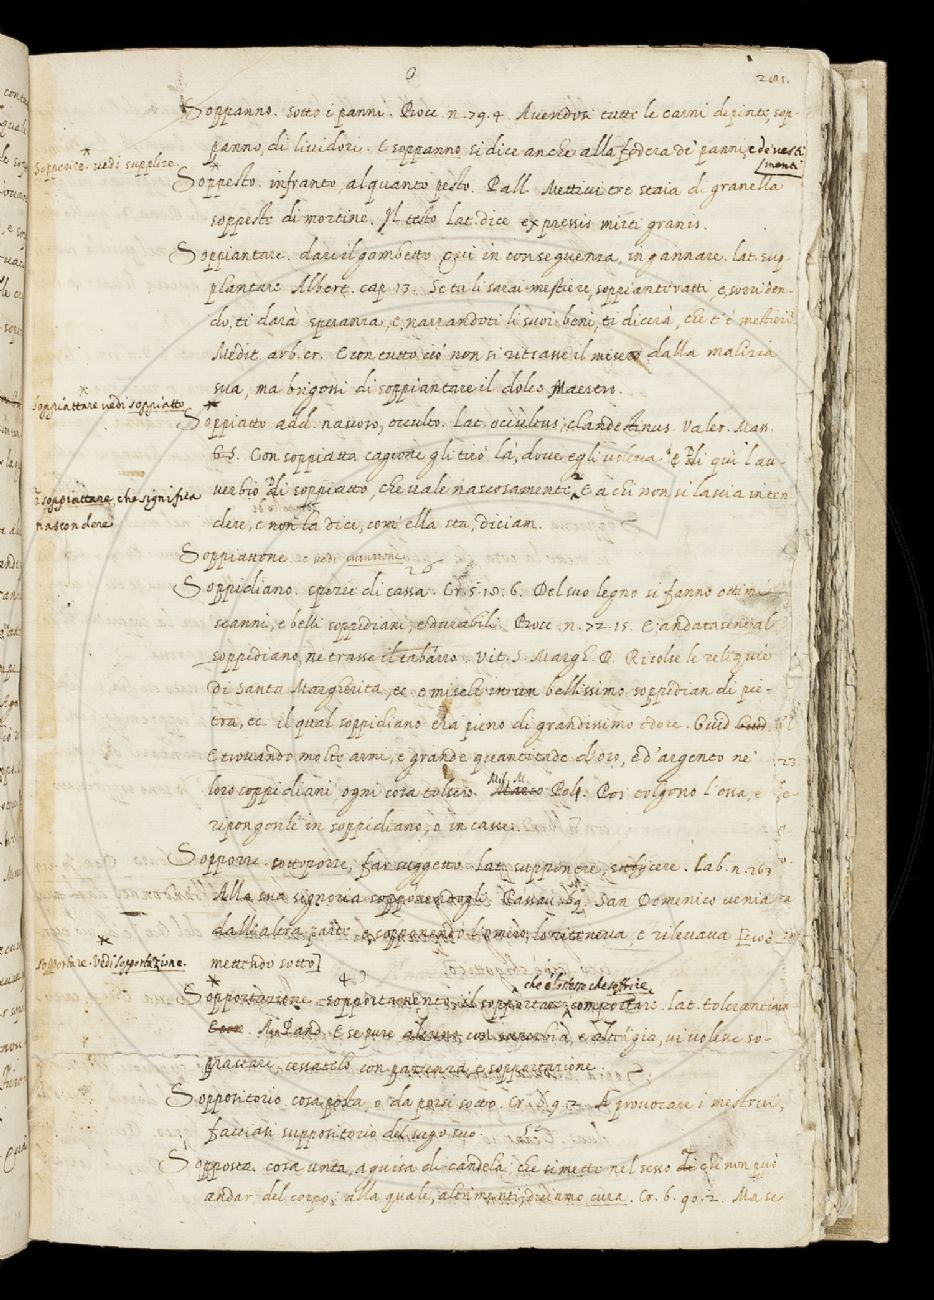 281.
Soppanno. sotto i panni. Bocc. n. 79. 4. Avendosi tutte le carni dipinte sop-
panno, di lividori. E soppanno si dice anche alla fodera de' panni, e de' vesti
menti
Sopperire. vedi supplire.
Soppesto. infranto, alquanto pesto. Pall. Mettivi tre staia di granella
soppeste di mortine. Il testo lat. dice expressis mirti granis.
Soppiantare. dare il gambetto. Qui in conseguenza, ingannare. lat. sup-
plantare. Albert. cap. 13. Se tu li sarai mestiere, soppianteratti, e, sorriden-
do, ti darà speranza, e, narrandoti li suoi beni, ti dicerà, che t'è mestieri
Medit. arb. cr. E con tutto ciò non si ritrasse il misero dalla malizia
sua, ma brigossi di soppiantare il dolce Maestro.
Soppiattare vedi soppiatto
Soppiatto add. nascoso, occulto. Lat. occultus, clandestinus. Valer. Mass.
Con soppiatta cagione gli tirò là, dove egli voleva. E di qui l'au-
verbio Di soppiatto, che vale nascosamente, E a chi non si lascia inten-
soppiattare, che significa
nascondere
dere, e non la dice, com' ella sta, diciam.
Soppiattone
Soppidiano. spezie di cassa. Cr. 5. 18. 6. Del suo legno si fanno ottimi
scanni, e belli soppidiani, e durabili. Bocc. n. 72. 15. E andatasene al
soppidiano, ne trasse il tabarro. Vit. S. Margh. P. Ricolse le reliquie
di Santa Margherita, ec. e misele in un bellissimo soppidian di pie-
tra, ec. il qual soppidiano era pieno di grandissimo odore. Guid
E trovando molte armi, e grande quantitade d'oro, e d'argento ne'
loro soppidiani ogni cosa tolsero. Mil. M. Pol. Poi tolgono l'ossa, e
ripongonle in soppidiano, o in casse.
Sopporre. sottoporre, far suggetto. Lat. supponere, subijcere. Lab. n. 263
Alla sua signoria sopponendogli. Passav. San Domenico venia
dall' altra parte e sopponendo l'omero, lo riteneva, e rilevava [cioè
mettendo sotto]
Sopportare. Vedi sopportazione.
che è lo stesso che soffrire
Sopportazione. sopportamento, il sopportare, comportare. lat. tolerantia
Pand. E se pure alcuno, con superbia, e altrigia, vi volesse so-
prastare, cessatelo con pazienza, e sopportazione.
Suppositorio. cosa posta, o da porsi sotto. Cr. A provocare i mestrui,
facciasi suppositorio del sugo suo.
Sopposta. cosa unta, a guisa di candela, che si mette nel sesso Di chi non può
andar del corpo; alla quale, altrimenti, diciamo cura. Cr. 6. 90. 2. Ma se